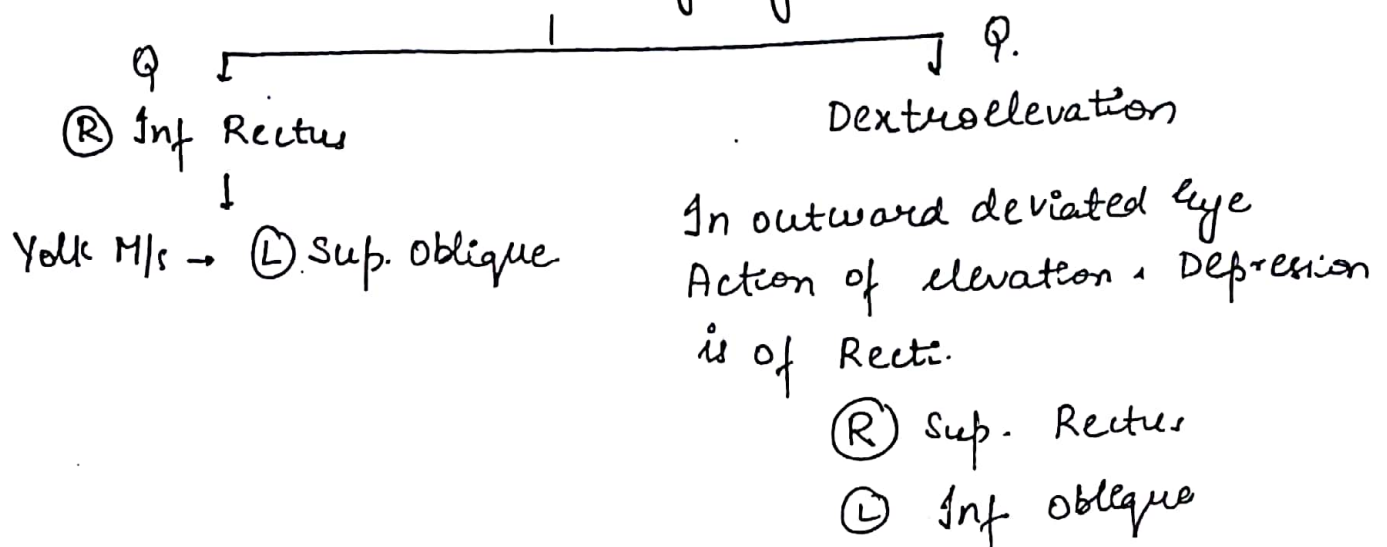 Q
Ⓡ Inf Rectus
↓
Yolk M/s → Ⓛ Sup. oblique
Q.
Dextroelevation
In outward deviated eye
Action of elevation & Depresion
is of Recti.
Ⓡ Sup. Rectus
Ⓛ Inf oblique